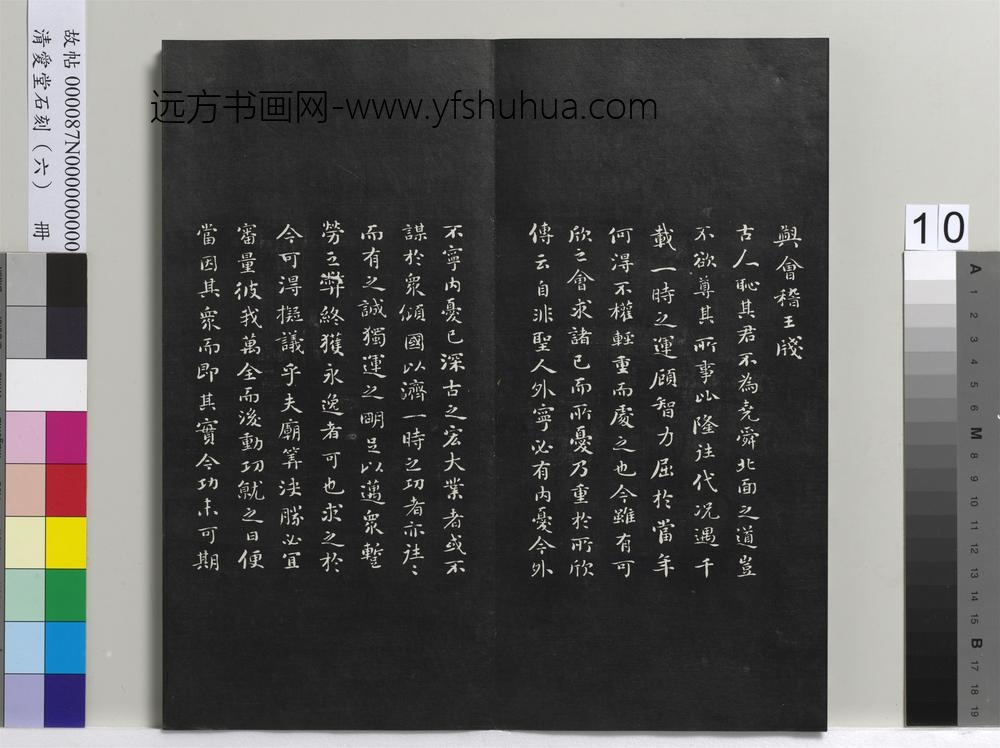 與會稽王牋
古人恥其君不為堯舜北面之道豈
不欲尊其所事比隆往代況遇千
載一時之運顧智力屈於當年
何得不權輕重而處之也今雖有可
欣之會求諸己而所憂乃重於所欣
傳云自非聖人外寧必有內憂今外
不寧內憂已深古之宏大業者或不
謀於衆傾國以濟一時之功者亦往〻
而有之誠獨運之明足以邁衆蹔
勞之弊終獲永逸者可也求之於
今可得擬議乎夫廟筭決勝必宜
審量彼我萬全而後動功就之日便
當因其衆而即其實今功未可期
远方书画网-www.yfshuhua.com
故帖 0000087N000000000
清愛堂石刻(六) 冊
10
A 1 2 3 4 5 6 M 8 9 10 11 12 13 14 15 B 17 18 19